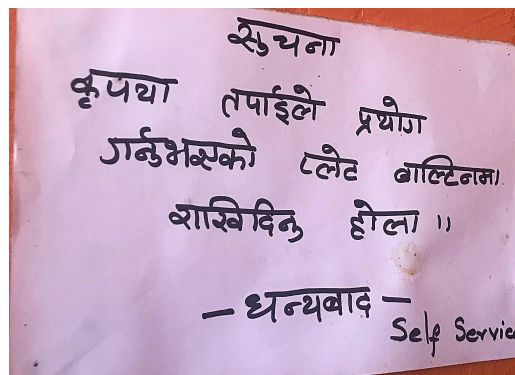 सुचना
कृपया तपाईले प्रयोग
गर्नुभएको प्लेट बाल्टिनमा
राखिदिनु होला ।।
— धन्यबाद —
Self Service